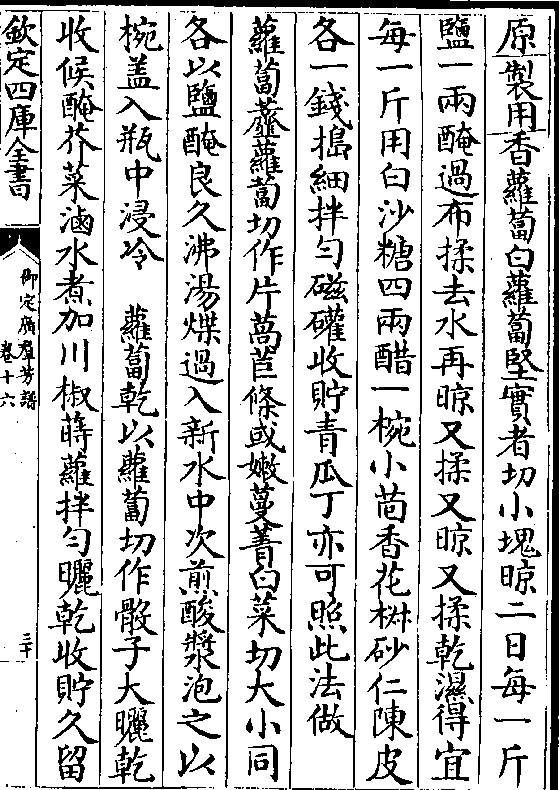 原製用香蘿蔔白蘿蔔堅實者切小塊晾二日每一斤
鹽一兩醃過布揉去水再晾又揉又晾又揉乾濕得宜
每一斤用白沙糖四兩醋一椀小茴香花椒砂仁陳皮
各一錢搗細拌勻磁礶收貯青瓜丁亦可照此法做
蘿蔔虀蘿蔔切作片萵苣條或嫩蔓菁白菜切大小同
各以鹽醃良久沸湯煠過入新水中次煎酸漿泡之以
椀盖入瓶中浸冷　蘿蔔乾以蘿蔔切作骰子大曬乾
收候醃芥菜滷水煮加川椒蒔蘿拌勻曬乾收貯久留
欽定四庫全書
御定廣羣芳譜
卷十六
三十